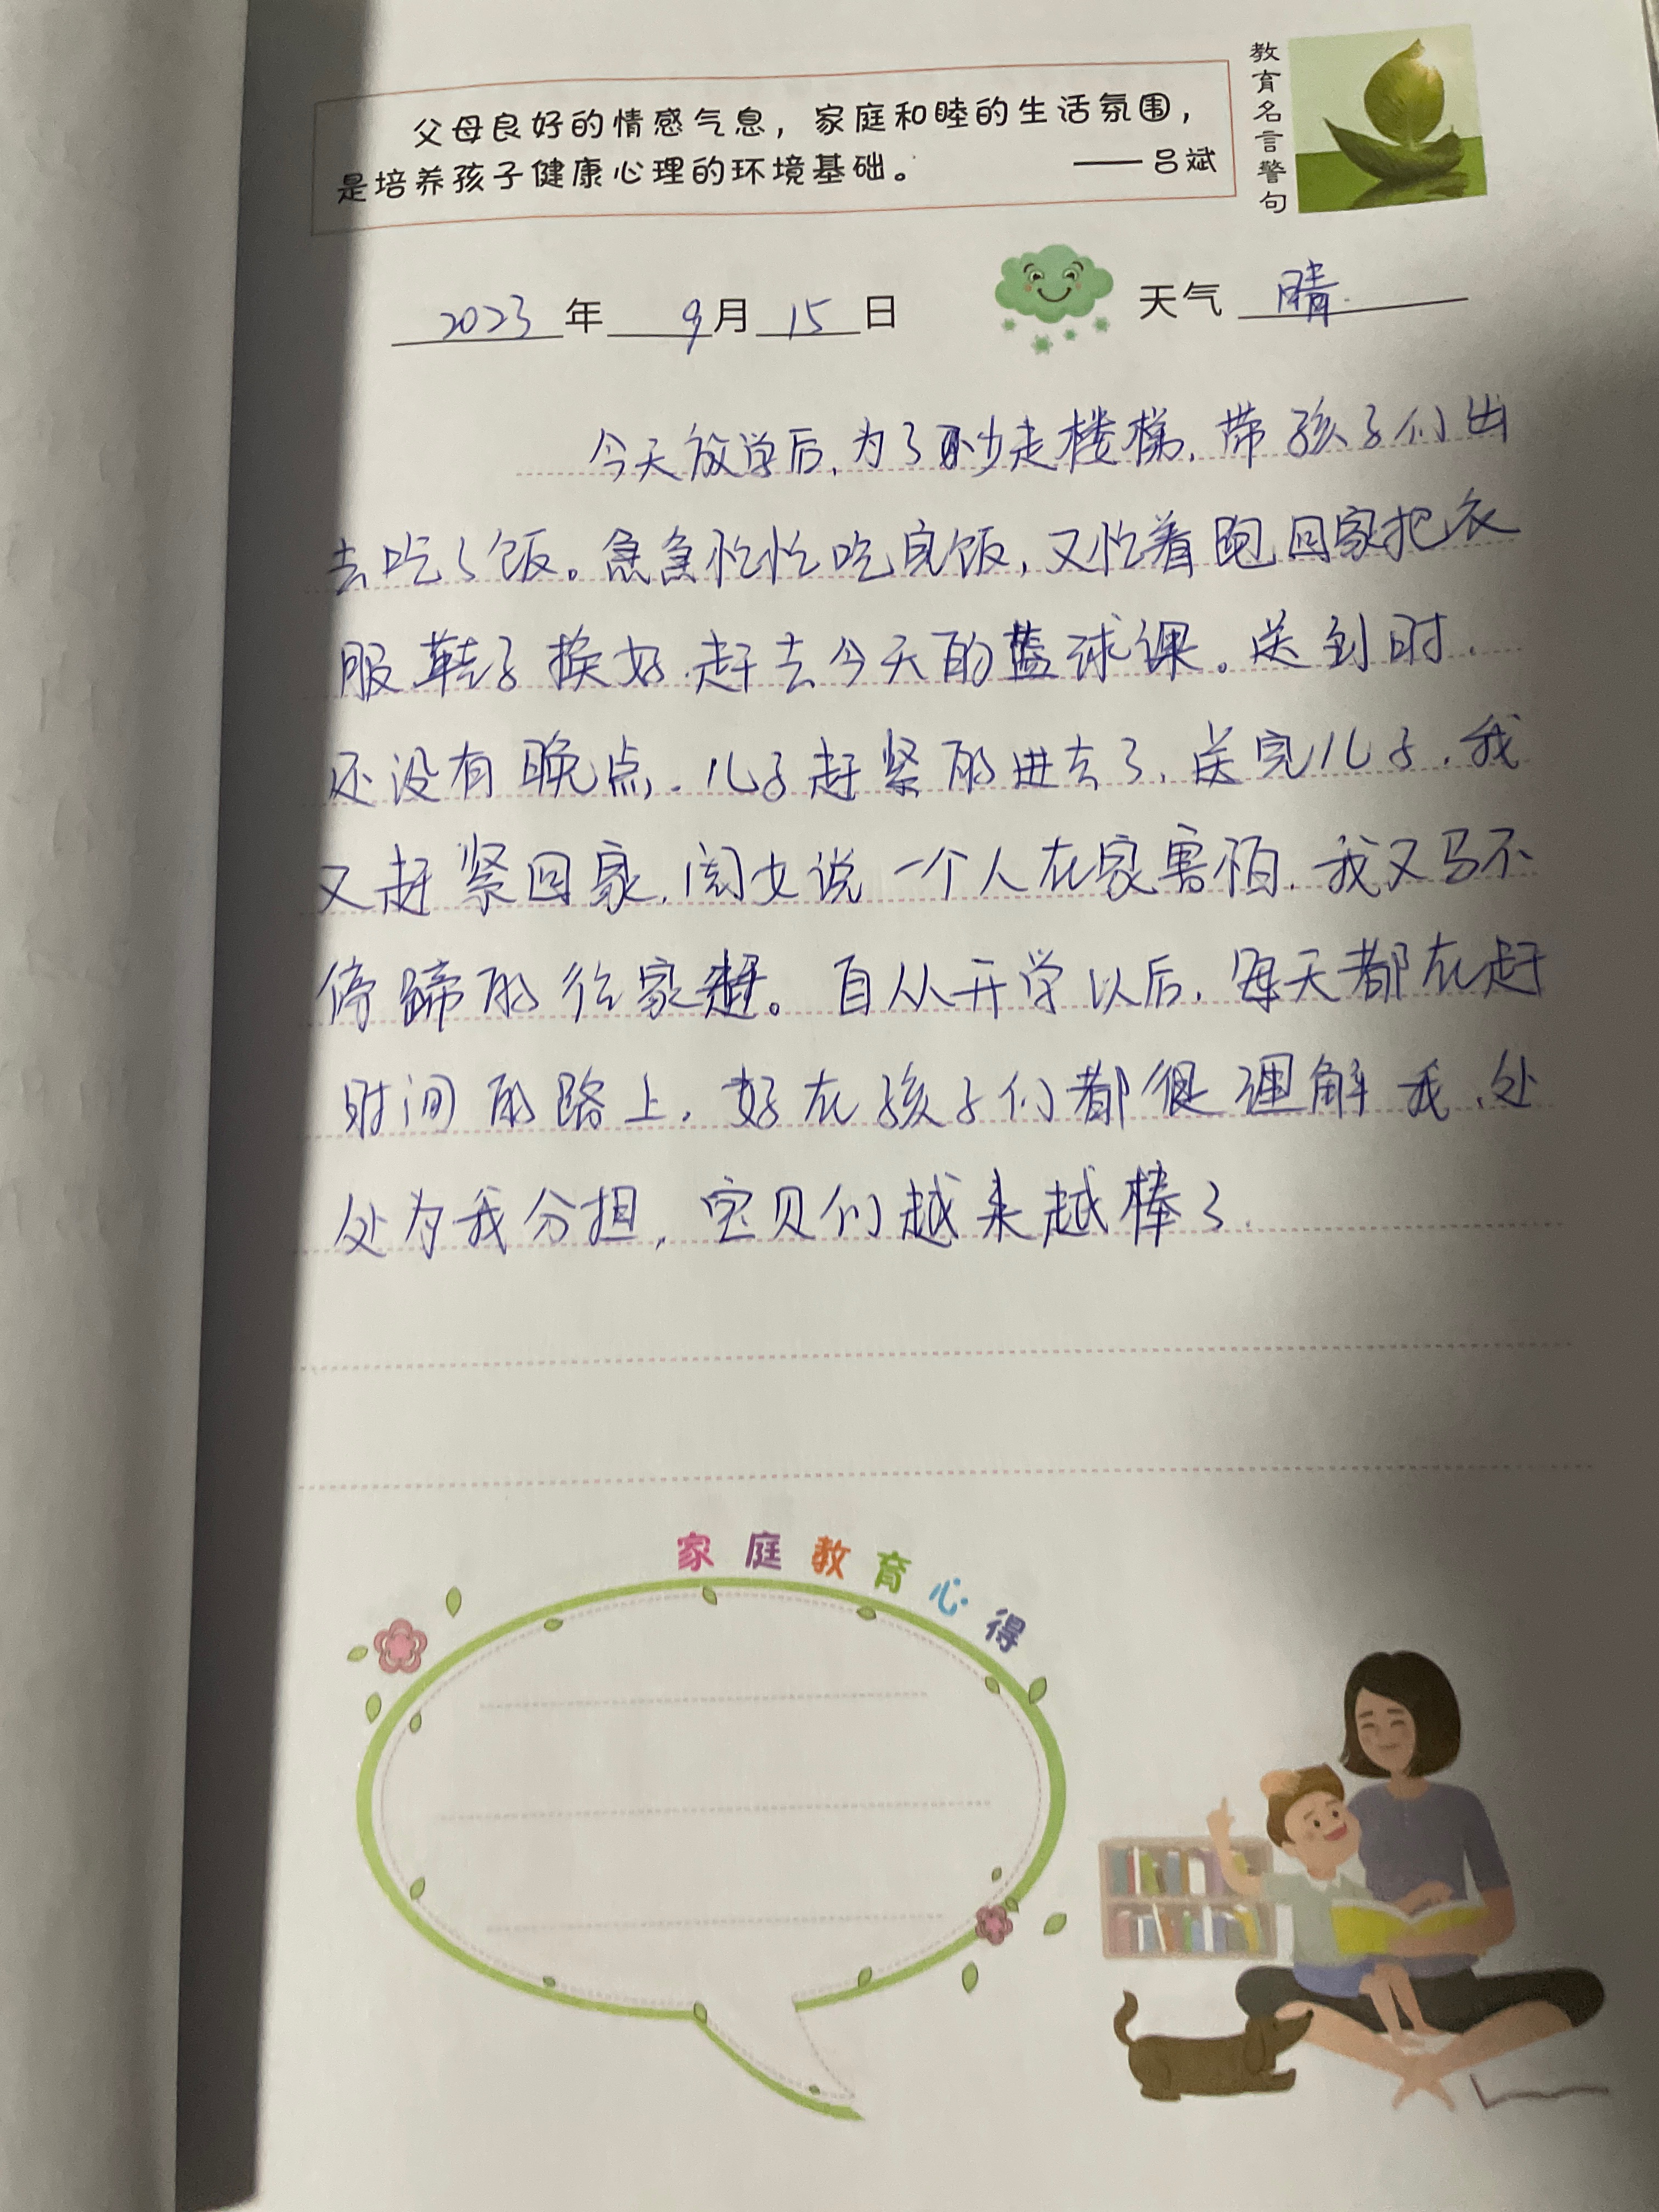 父母良好的情感气息，家庭和睦的生活氛围，
是培养孩子健康心理的环境基础。 —— 吕斌
教育名言警句
2023年 9月 15日 天气 晴
今天放学后，为了少走楼梯，带孩子们出
去吃了饭。急急忙忙吃完饭，又忙着跑回家把衣
服鞋子换好，赶去今天的蓝球课。送到时，
还没有晚点，儿子赶紧的进去了，送完儿子，我
又赶紧回家，闺女说一个人在家害怕，我又马不
停蹄的往家赶。自从开学以后，每天都在赶
时间的路上，好在孩子们都很理解我，处
处为我分担，宝贝们越来越棒了
家庭教育心得